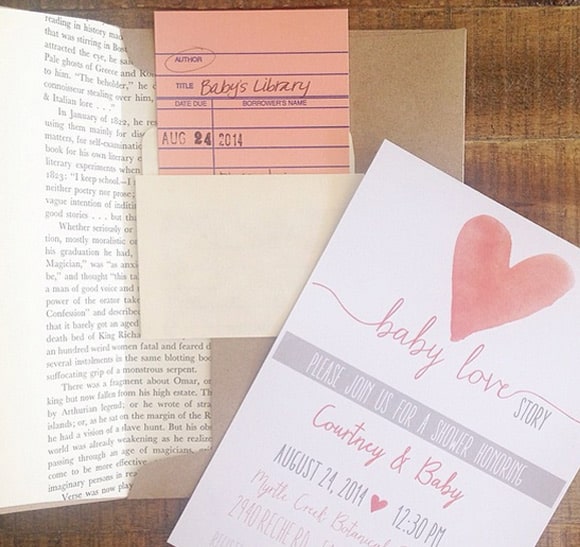 reading in history man
that was stirring in Bost
attracted the eye, he sa
Pale ghosts of Greece and Ro
to him. "The beholder," he c
connoisseur stealing over him,
& Italian lore . . ."
In January of 1822, he res
using them mainly for dis
matters, for self-examination
book for his own library e
literary experiments when
1823: "I keep school.—I
neither poetry nor prose;
vague intention of indit
good stories . . . but tha
Whether seriously or
tion, mostly moralistic o
his graduation he had,
Magician," was "as anxi
be," and thought "this ta
a man of good voice and
power of the orator take
Confession" and describe
that it barely got an aged
death bed of King Richa
an hundred weird women fatal and feared d
several instalments in the same blotting boo
suffocating grip of a monstrous serpent.
There was a fragment about Omar, or
king but now fallen from his high estate. Th
by Arthurian legend; or he wrote of stra
islands; or, as he sat on the margin of the R
he had a vision of a slave hunt. But his obs
world was already weakening as he realize
passing through an age of magicians,
come to be more effective
imaginary persons in rea
Verse was now play
AUTHOR
TITLE Baby's Library
DATE DUE BORROWER'S NAME
AUG 24 2014
baby love STORY
PLEASE JOIN US FOR A SHOWER HONORING
Courtney & Baby
AUGUST 24, 2014 12:30 PM
Myrtle Creek Botanical
2940 RECHE RD.